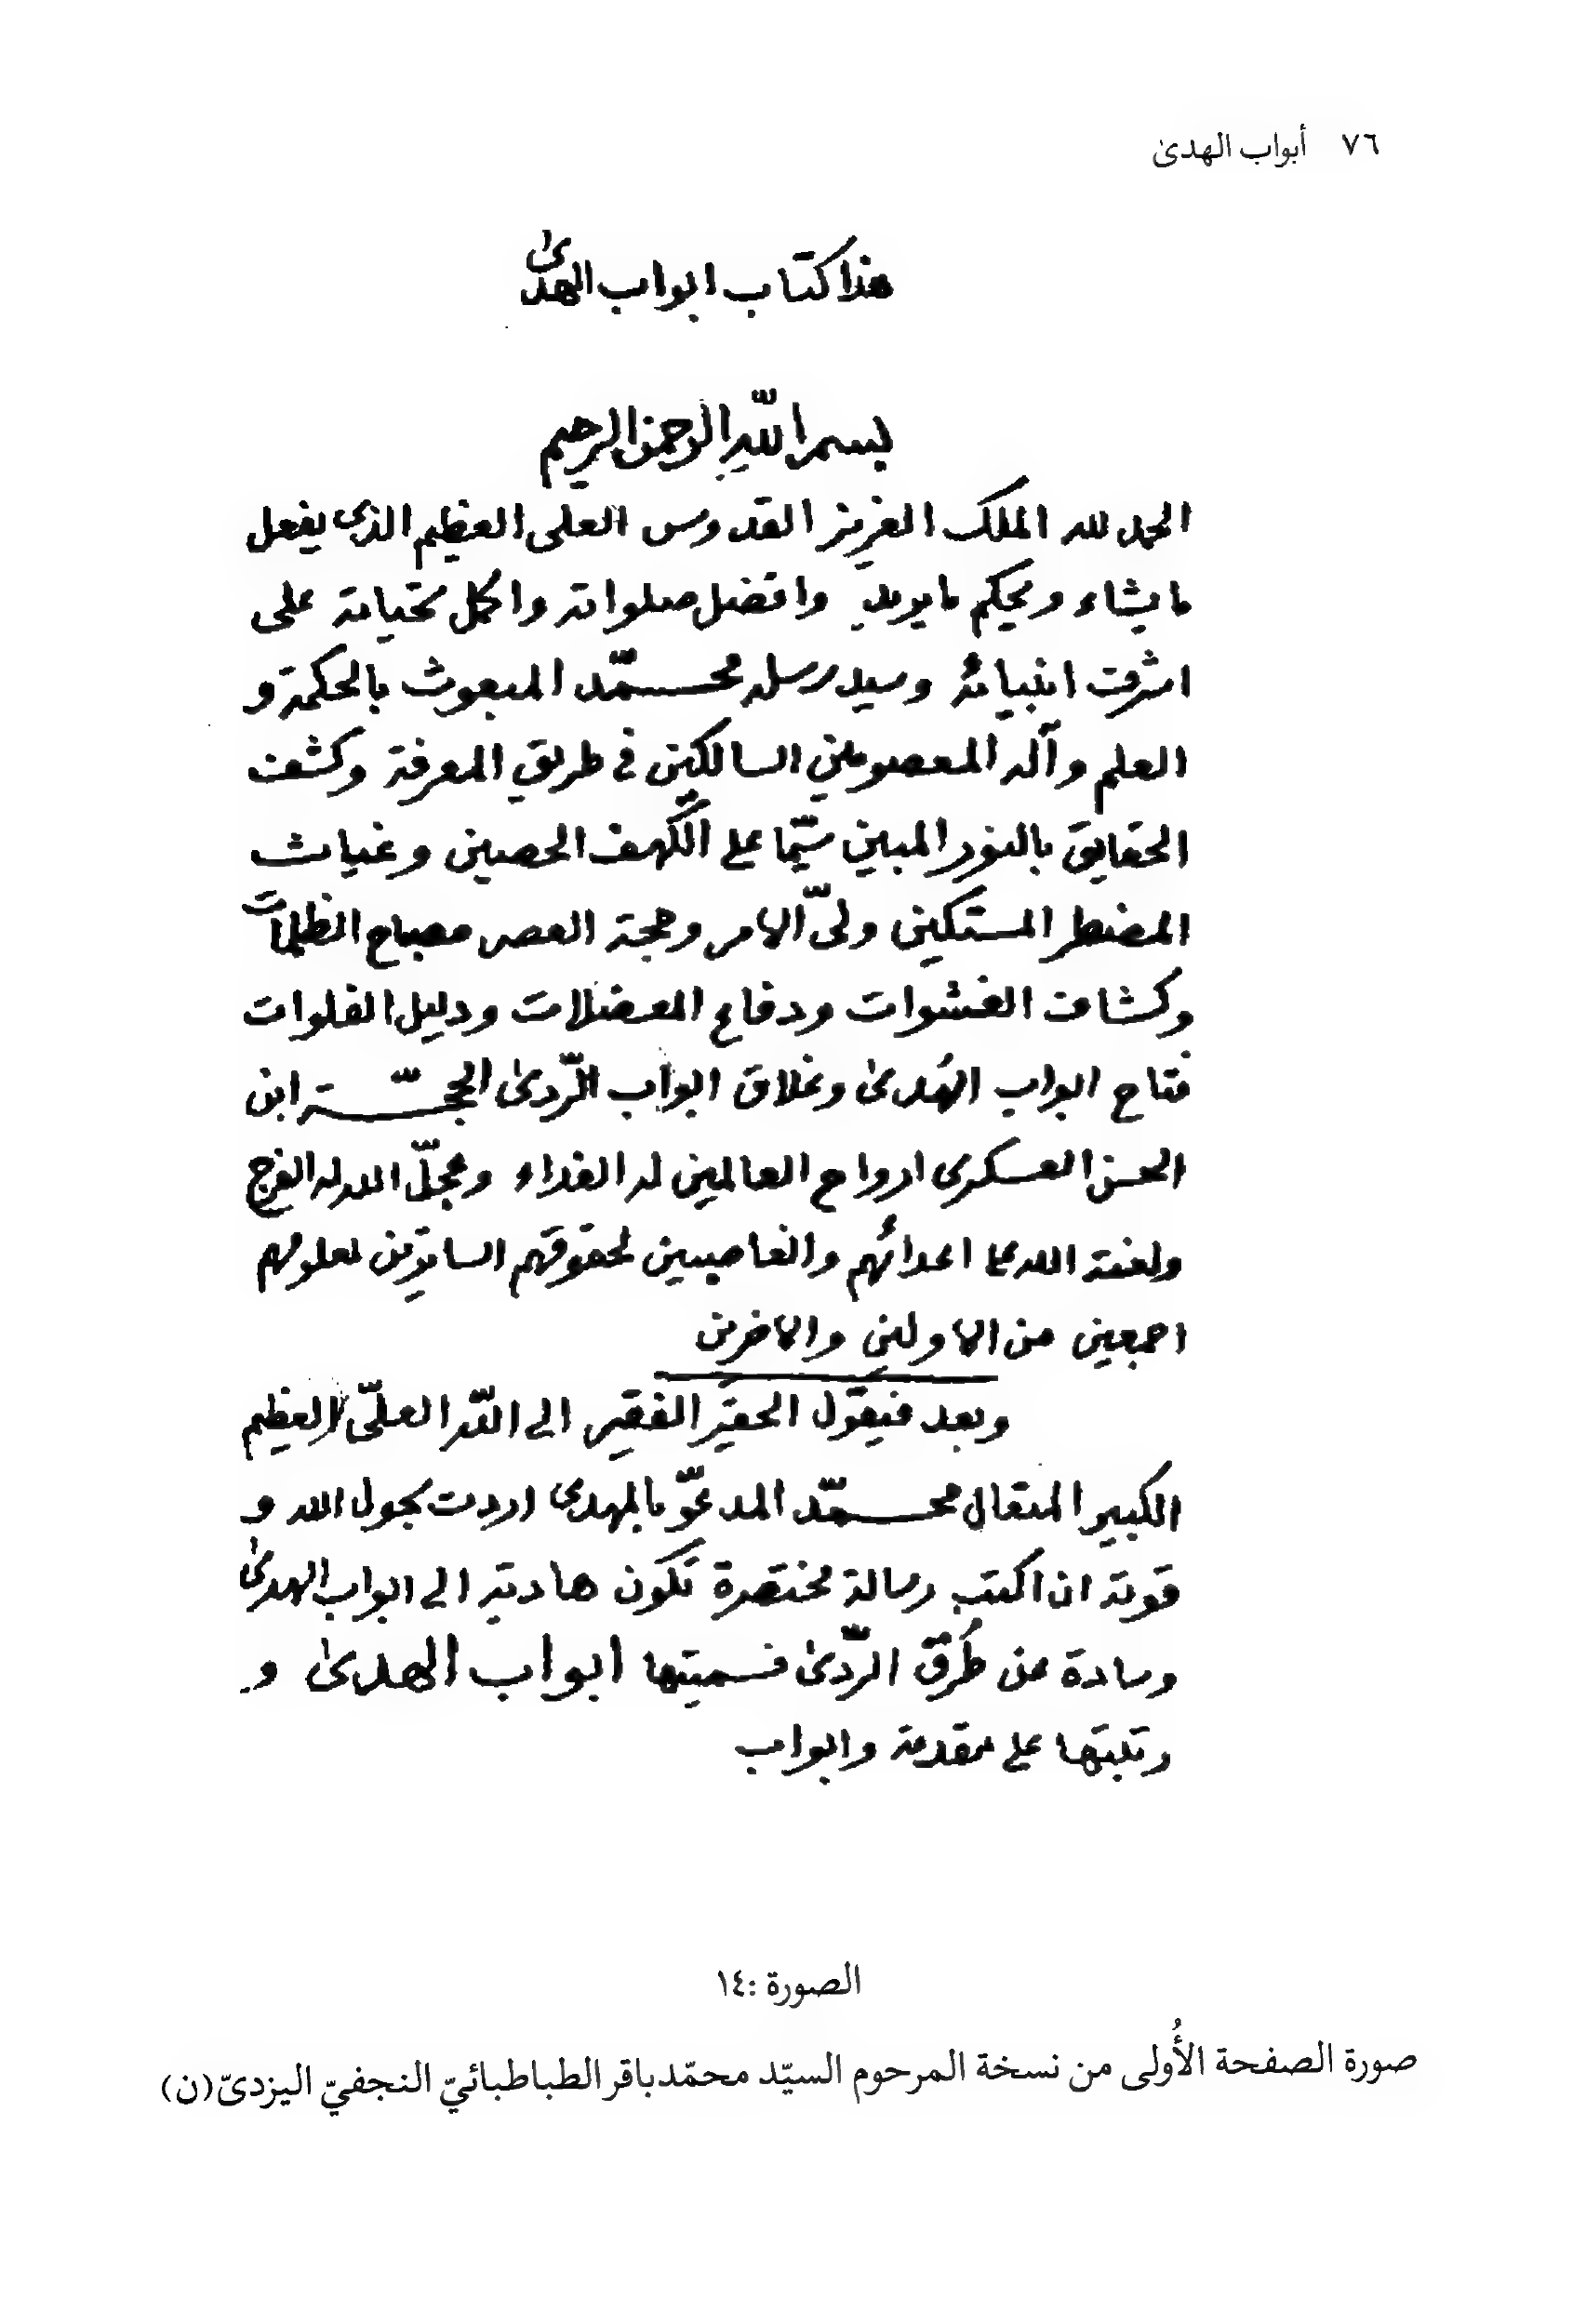 ٧٦ أبواب الهدىٰ
هذا كتاب ابواب الهدىٰ
بسم اللّه الرحمن الرحيم
الحمد لله الملك العزيز القدوس العلى العظيم الذى يفعل
ما يشاء ويحكم ما يريد وافضل صلواته واكمل تحياته على
اشرف انبيائه وسيد رسله محمّد المبعوث بالحكمة و
العلم وآله المعصومين السالكين في طريق المعرفة وكشف
الحقايق بالنور المبين سيّما على الكهف الحصين وغياث
المضطر المستكين ولىّ الامر وحجة العصر مصباح الظلمات
وكشاف الغشوات ودفاع المعضلات ودليل الفلوات
فتاح ابواب الهُدىٰ وغلاق ابواب الرّدىٰ الحجّة ابن
الحسن العسكرى ارواح العالمين له الفداء وعجّل الله له الفرج
ولعنة الله على اعدائهم والغاصبين لحقوقهم السارقين لعلومهم
اجمعين من الاولين والاخرين
وبعد فيقول الحقير الفقير الى اللّه العلىّ العظيم
الكبير المتعال محمّد المدعوّ بالمهدى اردت بحول الله و
قوته ان اكتب رسالة مختصرة تكون هادية الى ابواب الهدىٰ
وسادة عن طُرق الرّدىٰ فسميتها ابواب الهدىٰ و
رتبتها على مقدمة وابواب
الصورة :١٤
صورة الصفحة الأُولى من نسخة المرحوم السيّد محمّدباقر الطباطبائيّ النجفيّ اليزدىّ(ن)